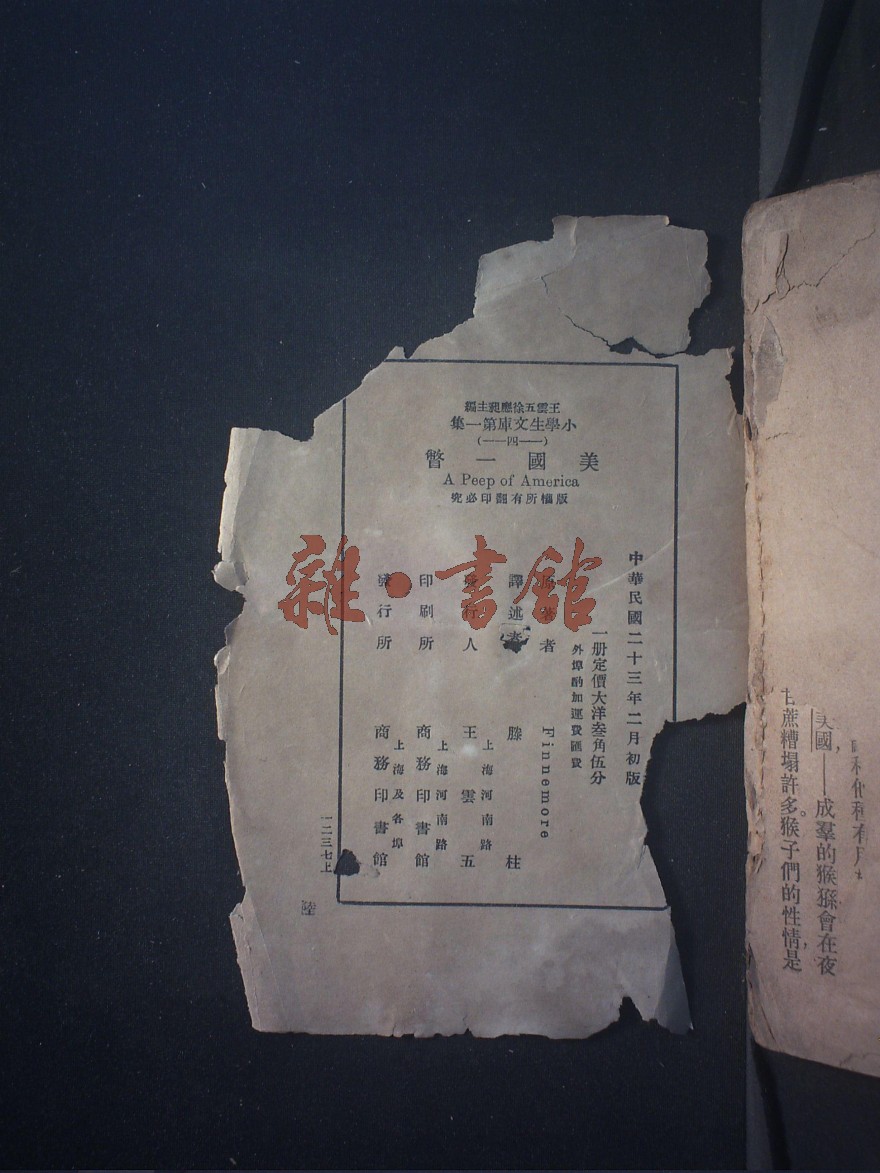 美國，——成羣的猴猻會在夜
甘蔗糟塌許多。猴子們的性情，是
王雲五徐應昶主編
小學生文庫第一集
美國一瞥
A Peep of America
版權所有翻印必究
中華民國二十三年二月初版
一册定價大洋叁角伍分
外埠酌加運費匯費
原著者 Finnemore
譯述者 滕柱
上海河南路
發行人 王雲五
上海河南路
印刷所 商務印書館
上海及各埠
發行所 商務印書館
一二三七上
陸
雜·書館